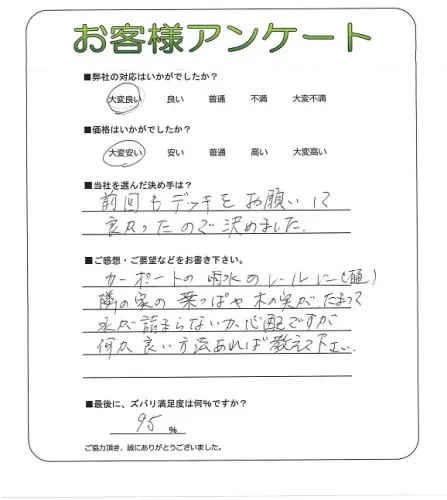 お客様アンケート
■弊社の対応はいかがでしたか?
大変良い 良い 普通 不満 大変不満
■価格はいかがでしたか?
大変安い 安い 普通 高い 大変高い
■当社を選んだ決め手は?
前回もデッキをお願いして
良かったので決めました.
■ご感想・ご要望などをお書き下さい。
カーポートの雨水のレールに(樋)
隣の家の葉っぱや木の実がたまって
水が詰まらないか心配ですが
何か良い方法あれば教えて下さい.
■最後に、ズバリ満足度は何%ですか?
95 %
ご協力頂き、誠にありがとうございました。